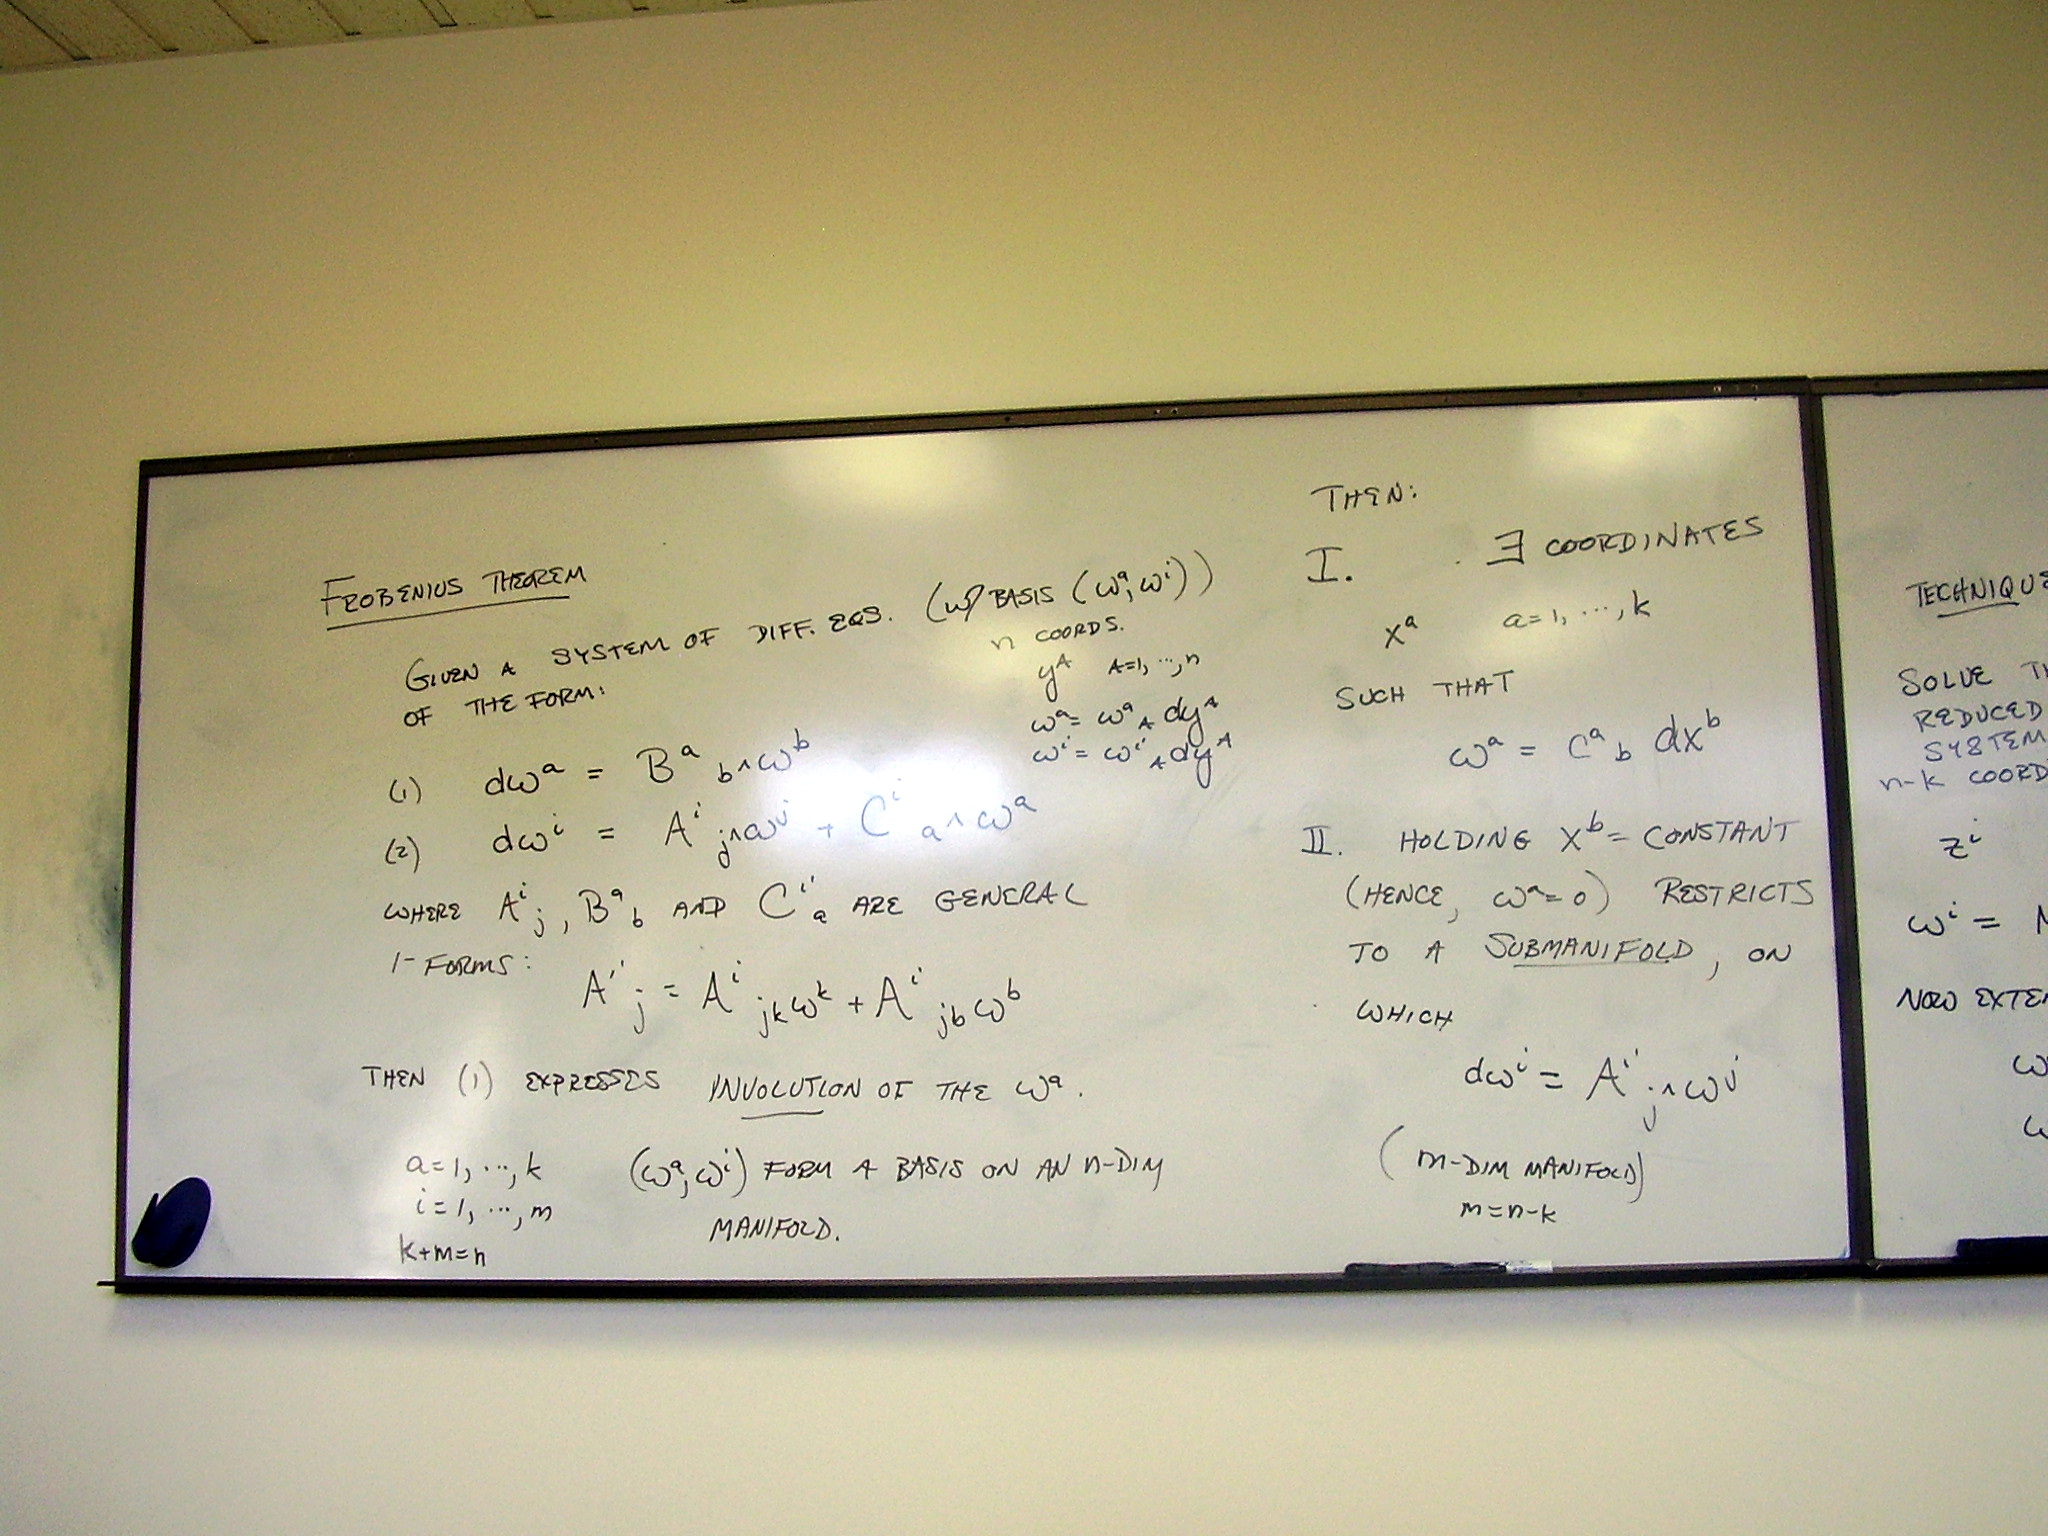 FROBENIUS THEOREM
GIVEN A SYSTEM OF DIFF. EQS. (W/ BASIS (ωᵃ, ωⁱ))
OF THE FORM:
n COORDS.
yᴬ A=1, ..., n
ωᵃ = ωᵃ_A dyᴬ
ωⁱ = ωⁱ_A dyᴬ
(1) dωᵃ = Bᵃ_b ∧ ωᵇ
(2) dωⁱ = Aⁱ_j ∧ ωʲ + Cⁱ_a ∧ ωᵃ
WHERE Aⁱ_j, Bᵃ_b AND Cⁱ_a ARE GENERAL
1-FORMS:
Aⁱ_j = Aⁱ_jk ωᵏ + Aⁱ_jb ωᵇ
THEN (1) EXPRESSES INVOLUTION OF THE ωᵃ.
a=1, ..., k
i=1, ..., m
k+m=n
(ωᵃ, ωⁱ) FORM A BASIS ON AN n-DIM
MANIFOLD.
THEN:
I. ∃ COORDINATES
xᵃ a=1, ..., k
SUCH THAT
ωᵃ = Cᵃ_b dxᵇ
II. HOLDING xᵇ = CONSTANT
(HENCE, ωᵃ=0) RESTRICTS
TO A SUBMANIFOLD, ON
WHICH
dωⁱ = Aⁱ_j ∧ ωʲ
(m-DIM MANIFOLD)
m=n-k
TECHNIQUE
SOLVE
REDUCED
SYSTEM
n-k COORD
zⁱ
ωⁱ =
NOW
ω
ω